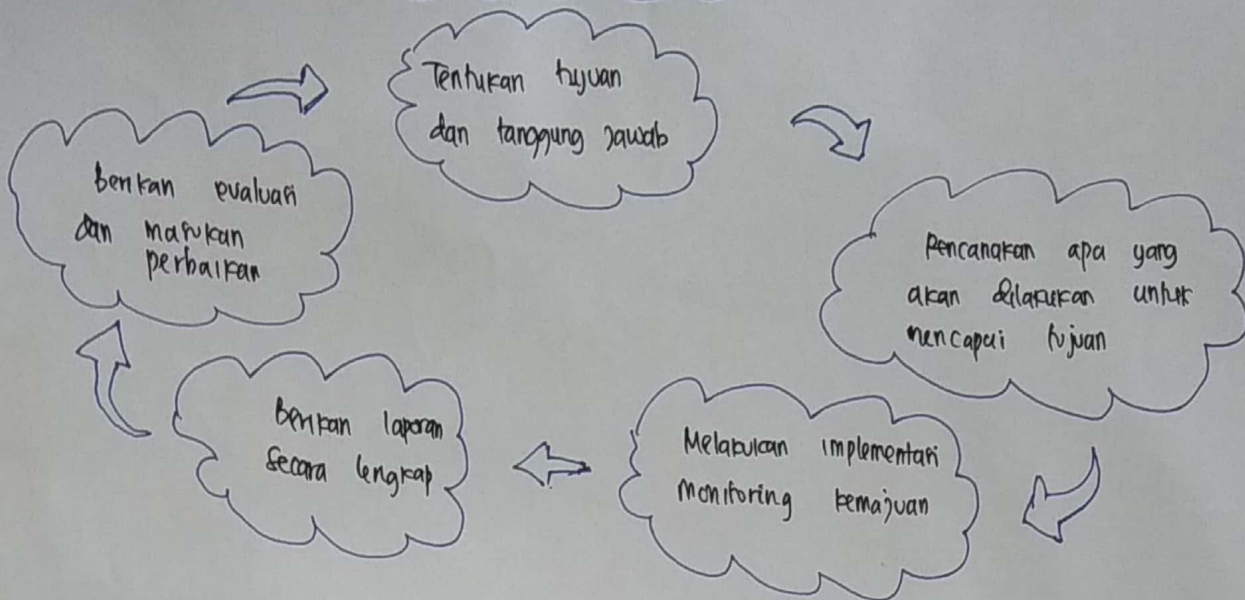 Tentukan tujuan
dan tanggung jawab
Rencanakan apa yang
akan dilakukan untuk
mencapai tujuan
Melakukan implementasi
monitoring kemajuan
Berikan laporan
secara lengkap
berikan evaluasi
dan masukan
perbaikan